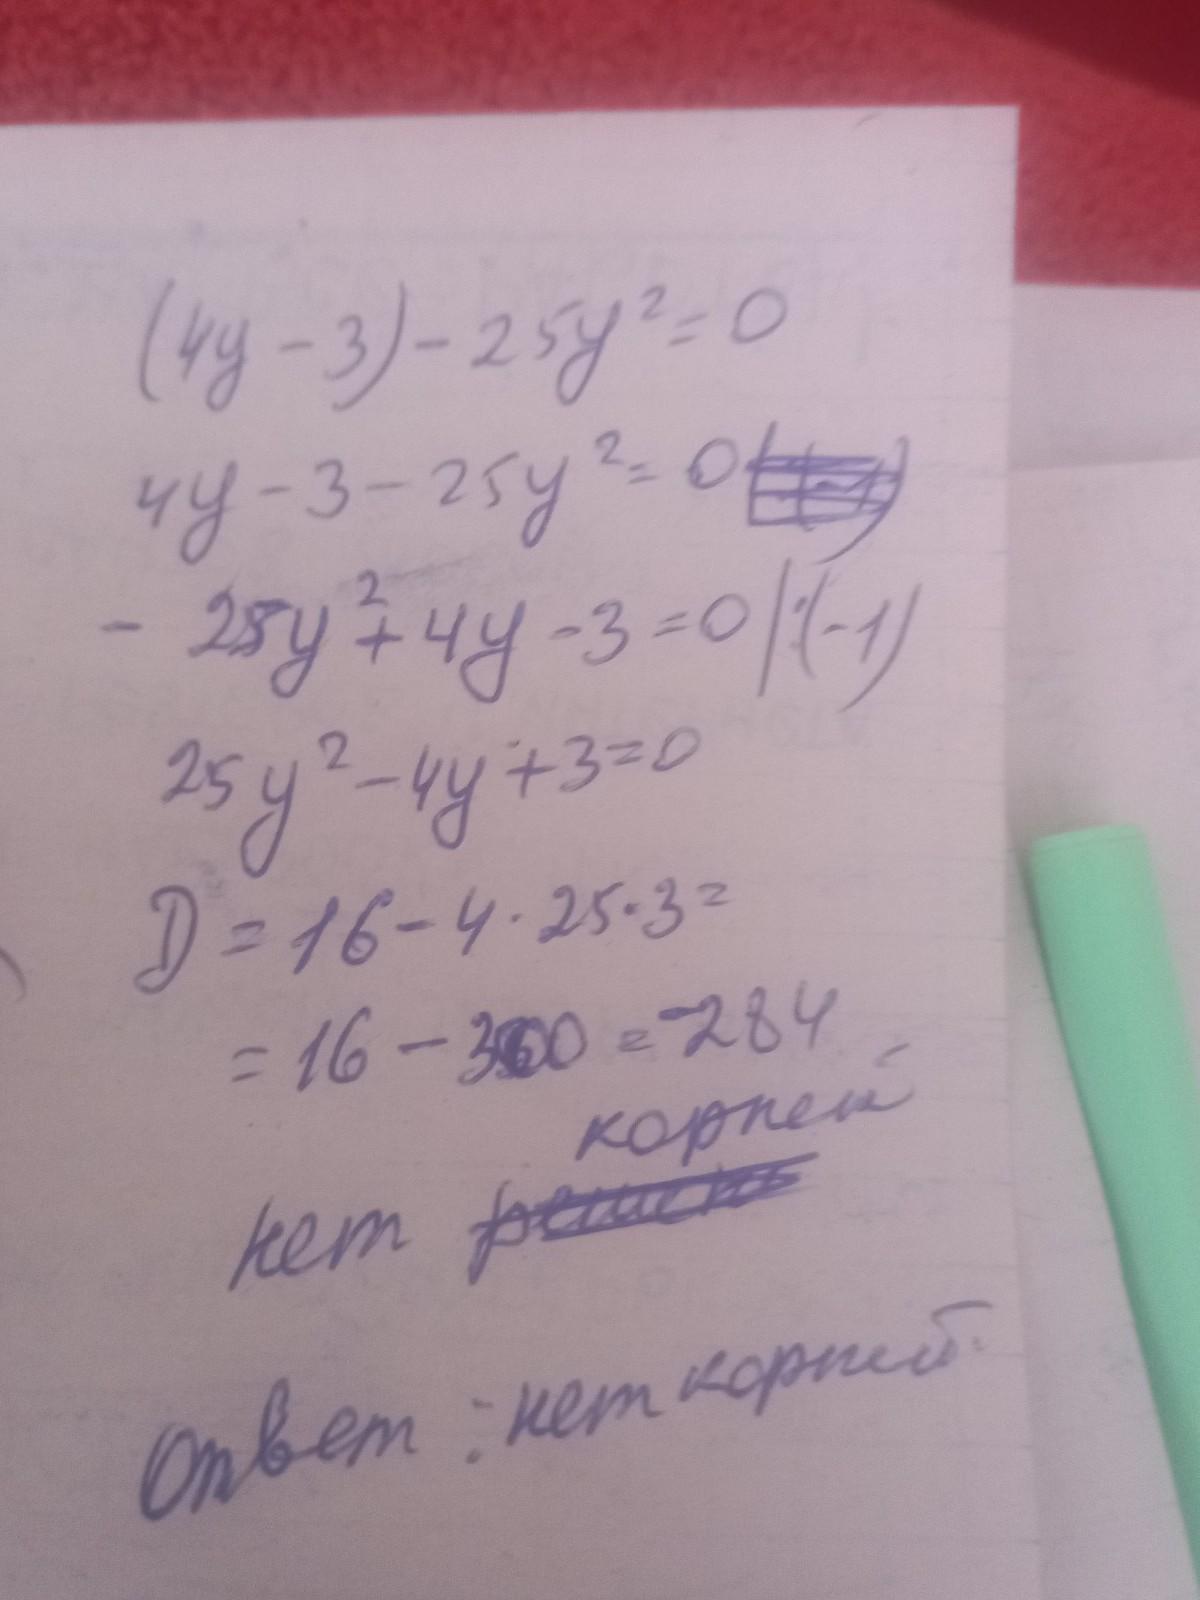 (4y - 3) - 25y² = 0
4y - 3 - 25y² = 0
- 25y² + 4y - 3 = 0 |:(-1)
25y² - 4y + 3 = 0
D = 16 - 4 · 25 · 3 =
= 16 - 300 = -284
корней
нет
Ответ: нет корней.